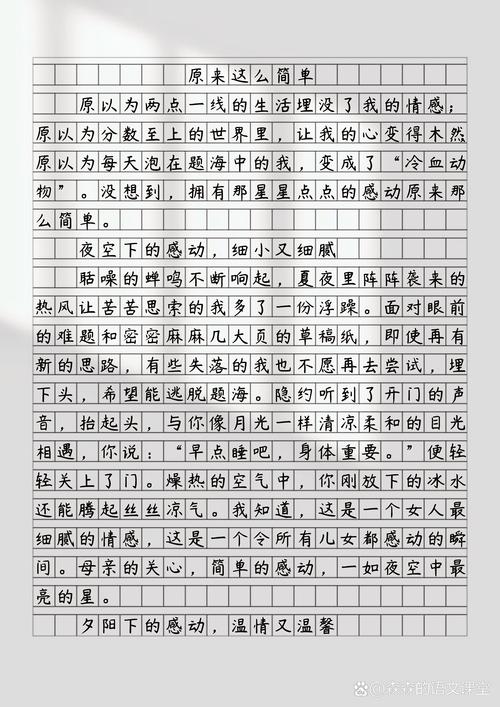 原来这么简单
原以为两点一线的生活埋没了我的情感；
原以为分数至上的世界里，让我的心变得木然
原以为每天泡在题海中的我，变成了“冷血动
物”。没想到，拥有那星星点点的感动原来那
么简单。
夜空下的感动，细小又细腻
聒噪的蝉鸣不断响起，夏夜里阵阵袭来的
热风让苦苦思索的我多了一份浮躁。面对眼前
的难题和密密麻麻几大页的草稿纸，即使再有
新的思路，有些失落的我也不愿再去尝试，埋
下头，希望能逃脱题海。隐约听到了开门的声
音，抬起头，与你像月光一样清凉柔和的目光
相遇，你说：“早点睡吧，身体重要。”便轻
轻关上了门。燥热的空气中，你刚放下的冰水
还能腾起丝丝凉气。我知道，这是一个女人最
细腻的情感，这是一个令所有儿女都感动的瞬
间。母亲的关心，简单的感动，一如夜空中最
亮的星。
夕阳下的感动，温情又温馨
森森的语文课堂